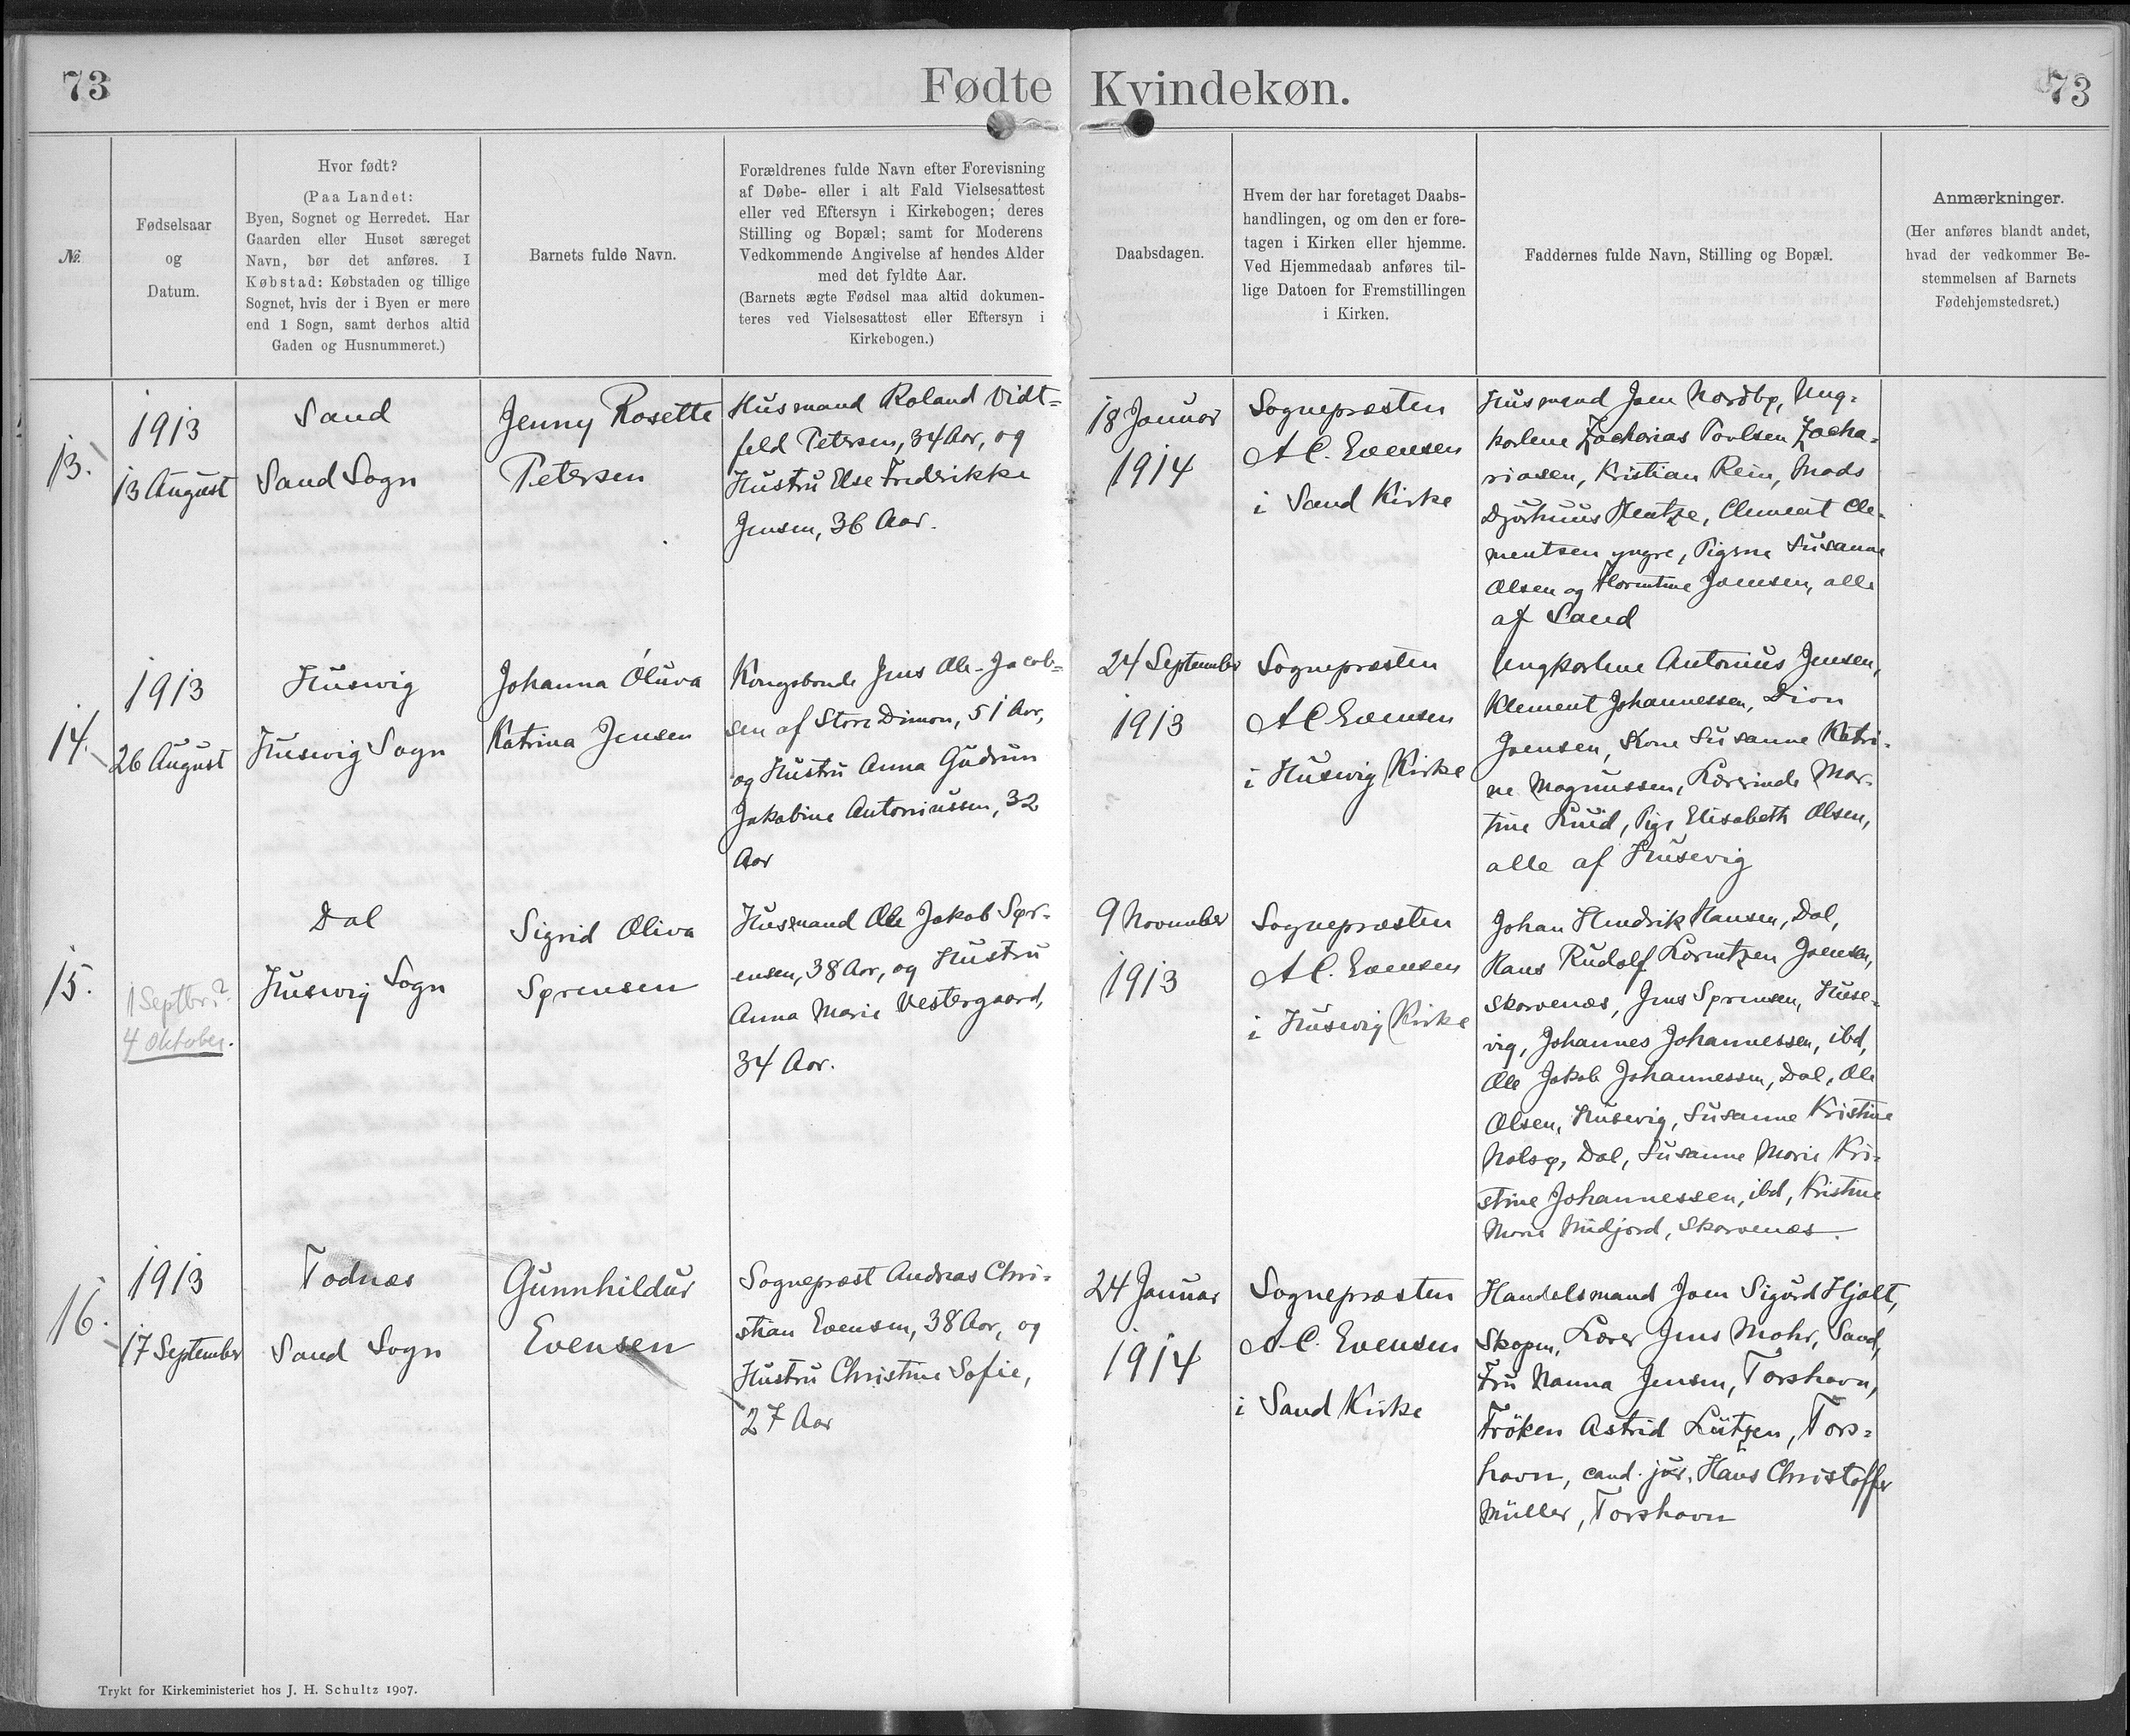 73
Fødte
Kvindekøn.
73
№.
Fødselsaar
og
Datum.
Hvor født?
(Paa Landet:
Byen, Sognet og Herredet. Har
Gaarden eller Huset særeget
Navn, bør det anføres. I
Købstad: Købstaden og tillige
Sognet, hvis der i Byen er mere
end 1 Sogn, samt derhos altid
Gaden og Husnummeret.)
Barnets fulde Navn.
Forældrenes fulde Navn efter Forevisning
af Døbe- eller i alt Fald Vielsesattest
eller ved Eftersyn i Kirkebogen; deres
Stilling og Bopæl; samt for Moderens
Vedkommende Angivelse af hendes Alder
med det fyldte Aar.
(Barnets ægte Fødsel maa altid dokumen-
teres ved Vielsesattest eller Eftersyn i
Kirkebogen.)
Daabsdagen.
Hvem der har foretaget Daabs-
handlingen, og om den er fore-
tagen i Kirken eller hjemme.
Ved Hjemmedaab anføres til-
lige Datoen for Fremstillingen
i Kirken.
Faddernes fulde Navn, Stilling og Bopæl.
Anmærkninger.
(Her anføres blandt andet,
hvad der vedkommer Be-
stemmelsen af Barnets
Fødehjemstedsret.)
13.
1913
13 August
Sand
Sand Sogn
Jenny Rosette
Petersen
Husmand Roland Vidt=
feld Petersen, 34 Aar, og
Hustru Else Fredrikke
Jensen, 36 Aar.
18 Januar
1914
Sognepræsten
A C. Evensen
i Sand Kirke
Husmand Joen Nordbø, Ung-
karlene Zacharias Poulsen Zacha-
riasen, Kristian Rein, Mads
Djurhuus Hentze, Clement Cle-
mentsen yngre, Pigerne Susanne
Olsen og Florentine Joensen, alle
af Sand
14.
1913
26 August
Husevig
Husevig Sogn
Johanna Óluva
Katrina Jensen
Kongsbonde Jens Ole Jacob=
sen af Store Dimon, 51 Aar,
og Hustru Anna Gudrun
Jakobine Antoniussen, 32
Aar
24 September
1913
Sognepræsten
A C Evensen
i Husevig Kirke
Ungkarlene Antonius Jensen,
Klement Johannessen, Dion
Joensen, Kone Susanne Katri-
ne Magnussen, Lærerinde Mar-
tine Knud, Pige Elisabeth Olsen,
alle af Husevig
15.
1 Septbr?
4 Oktober.
Dal
Husevig Sogn
Sigrid Oliva
Sørensen
Husmand Ole Jakob Sør-
ensen, 38 Aar, og Hustru
Anna Marie Vestergaard,
34 Aar.
9 November
1913
Sognepræsten
A C. Evensen
i Husevig Kirke
Johan Hendrik Hansen, Dal,
Hans Rudolf Lorentzen Joensen,
Skarvenæs, Jens Sørensen, Huse-
vig, Johannes Johannessen, ibd,
Ole Jakob Johannessen, Dal, Ole
Olsen, Husevig, Susanne Kristine
Nolsø, Dal, Susanne Marie Kri-
stine Johannessen, ibd, Kristine
Marie Midjord, Skarvenæs.
16.
1913
17 September
Todnæs
Sand Sogn
Gunnhildur
Evensen
Sognepræst Andreas Chri-
stian Evensen, 38 Aar, og
Hustru Christine Sofie,
27 Aar
24 Januar
1914
Sognepræsten
A C. Evensen
i Sand Kirke
Handelsmand Joen Sigurd Hjalt,
Skopen, Lærer Jens Mohr, Sand,
Fru Nanna Jensen, Torshavn,
Frøken Astrid Lützen, Tors-
havn, cand. jur. Hans Christoffer
Müller, Torshavn
Trykt for Kirkeministeriet hos J. H. Schultz 1907.